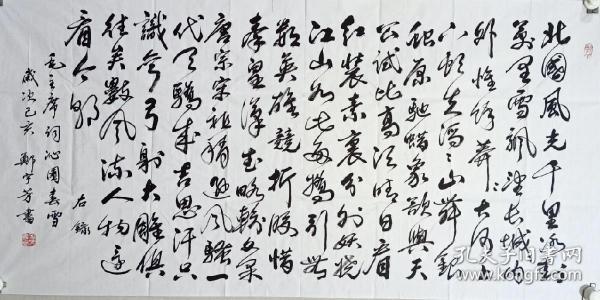 北國風光千里冰封
萬里雪飘望长城内
外惟馀莽莽大河上
下顿失滔滔山舞银
蛇原驰蜡象欲與天
公试比高须晴日看
红装素裹分外妖娆
江山如此多娇引無
數英雄競折腰惜
秦皇漢武略輸文采
唐宗宋祖稍遜風騷一
代天驕成吉思汗只
識弯弓射大雕俱
往矣數風流人物还
看今朝
右錄
毛主席詞沁園春雪
歲次己亥 鄭宇芳書
孔夫子旧书网